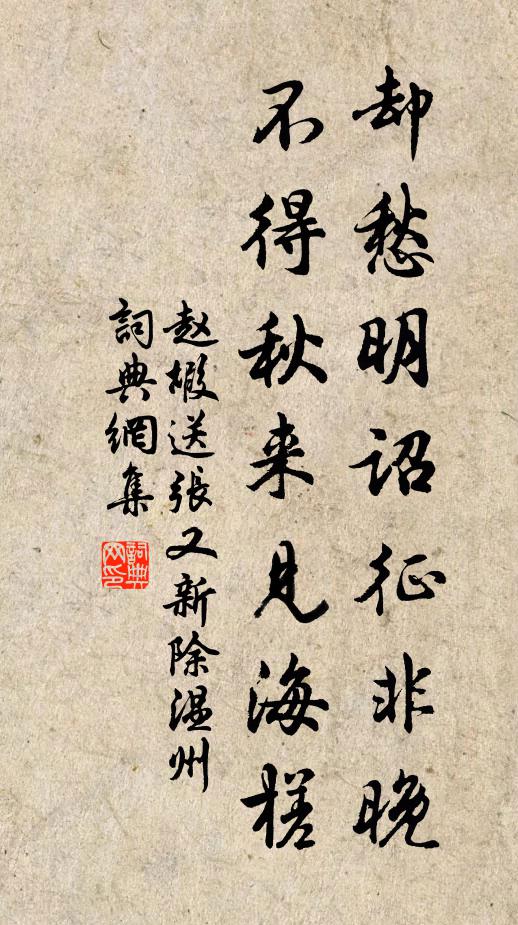 却愁明詔征非晚
不得秋来見海槎
赵嘏送張又新除温州
詞典網集
詞典网印